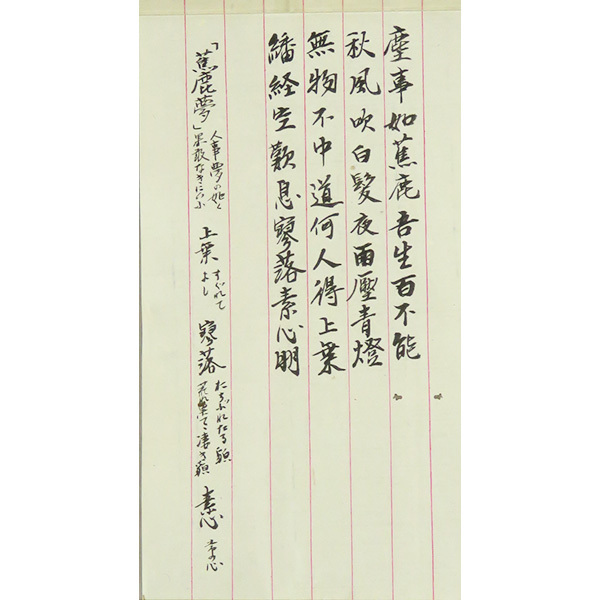 塵事如蕉鹿吾生百不能
秋風吹白髪夜雨壓青燈
無物不中道何人得上乗
繙経空歎息寥落素心朋
「蕉鹿夢」人事夢の如く果敢なきにいふ 上乗 すぐれてよし 寥落 おちぶれたる貌 凄き貌 素心 常の心